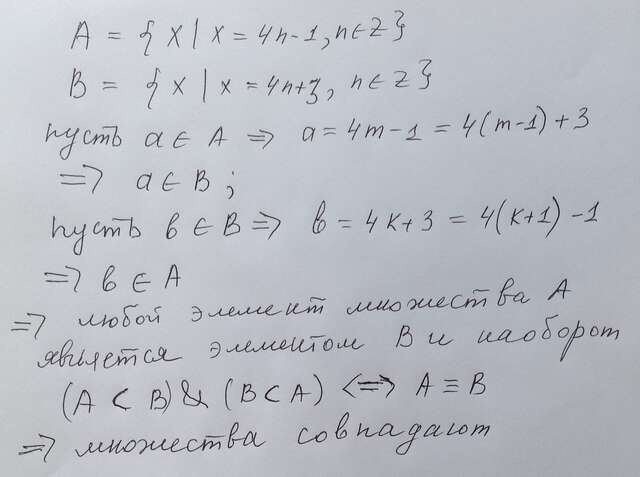 A = { x | x = 4n-1, n ∈ Z }
B = { x | x = 4n+3, n ∈ Z }
пусть a ∈ A => a = 4m-1 = 4(m-1)+3
=> a ∈ B ;
пусть в ∈ B => в = 4k+3 = 4(k+1)-1
=> в ∈ A
=> любой элемент множества A
является элементом B и наоборот
(A ⊂ B) & (B ⊂ A) <=> A ≡ B
=> множества совпадают